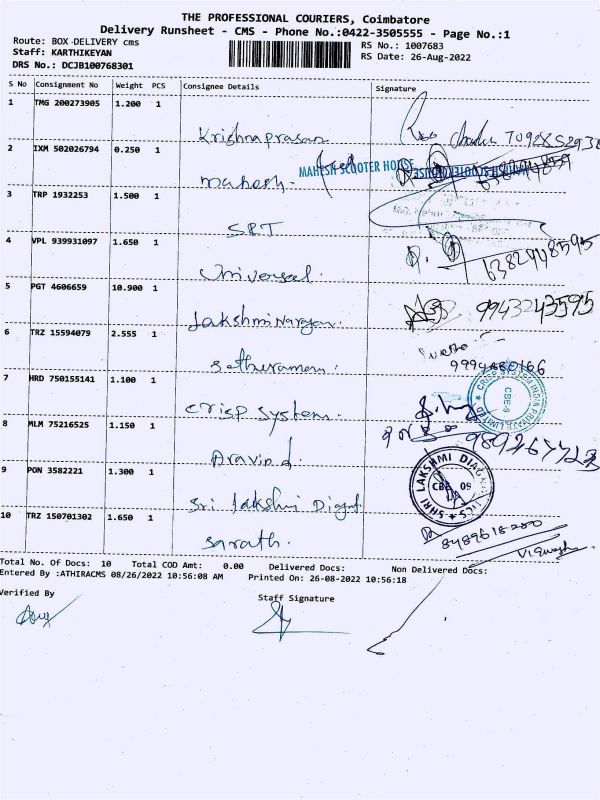 THE PROFESSIONAL COURIERS, Coimbatore
Delivery Runsheet - CMS - Phone No.:0422-3505555 - Page No.:1
Route: BOX-DELIVERY cms RS No.: 1007683
Staff: KARTHIKEYAN RS Date: 26-Aug-2022
DRS No.: DCJB100768301
S No Consignment No Weight PCS Consignee Details Signature
1 TMG 200273905 1.200 1
Krishnaprasan
2 IXM 502026794 0.250 1
MAHESH SCOOTER HOUSE
mahesh.
3 TRP 1932253 1.500 1
SPT
4 VPL 939931097 1.650 1
6382948595
Universal.
5 PGT 4606659 10.900 1
Lakshmi Narayan. 9943243595
6 TRZ 15594079 2.555 1
Sethuraman. 9994480166
7 HRD 750155141 1.100 1
CRISP SYSTEM INDIA PRIVATE LIMITED
CBE-9
Crisp System.
8 MLM 75216525 1.150 1
Aravind.
9 PON 3582221 1.300 1
SHRI LAKSHMI
CBE 09
Sri Lakshmi
10 TRZ 150701302 1.650 1
Sarath.
Total No. Of Docs: 10 Total COD Amt: 0.00 Delivered Docs: Non Delivered Docs:
Entered By :ATHIRACMS 08/26/2022 10:56:08 AM Printed On: 26-08-2022 10:56:18
Verified By Staff Signature